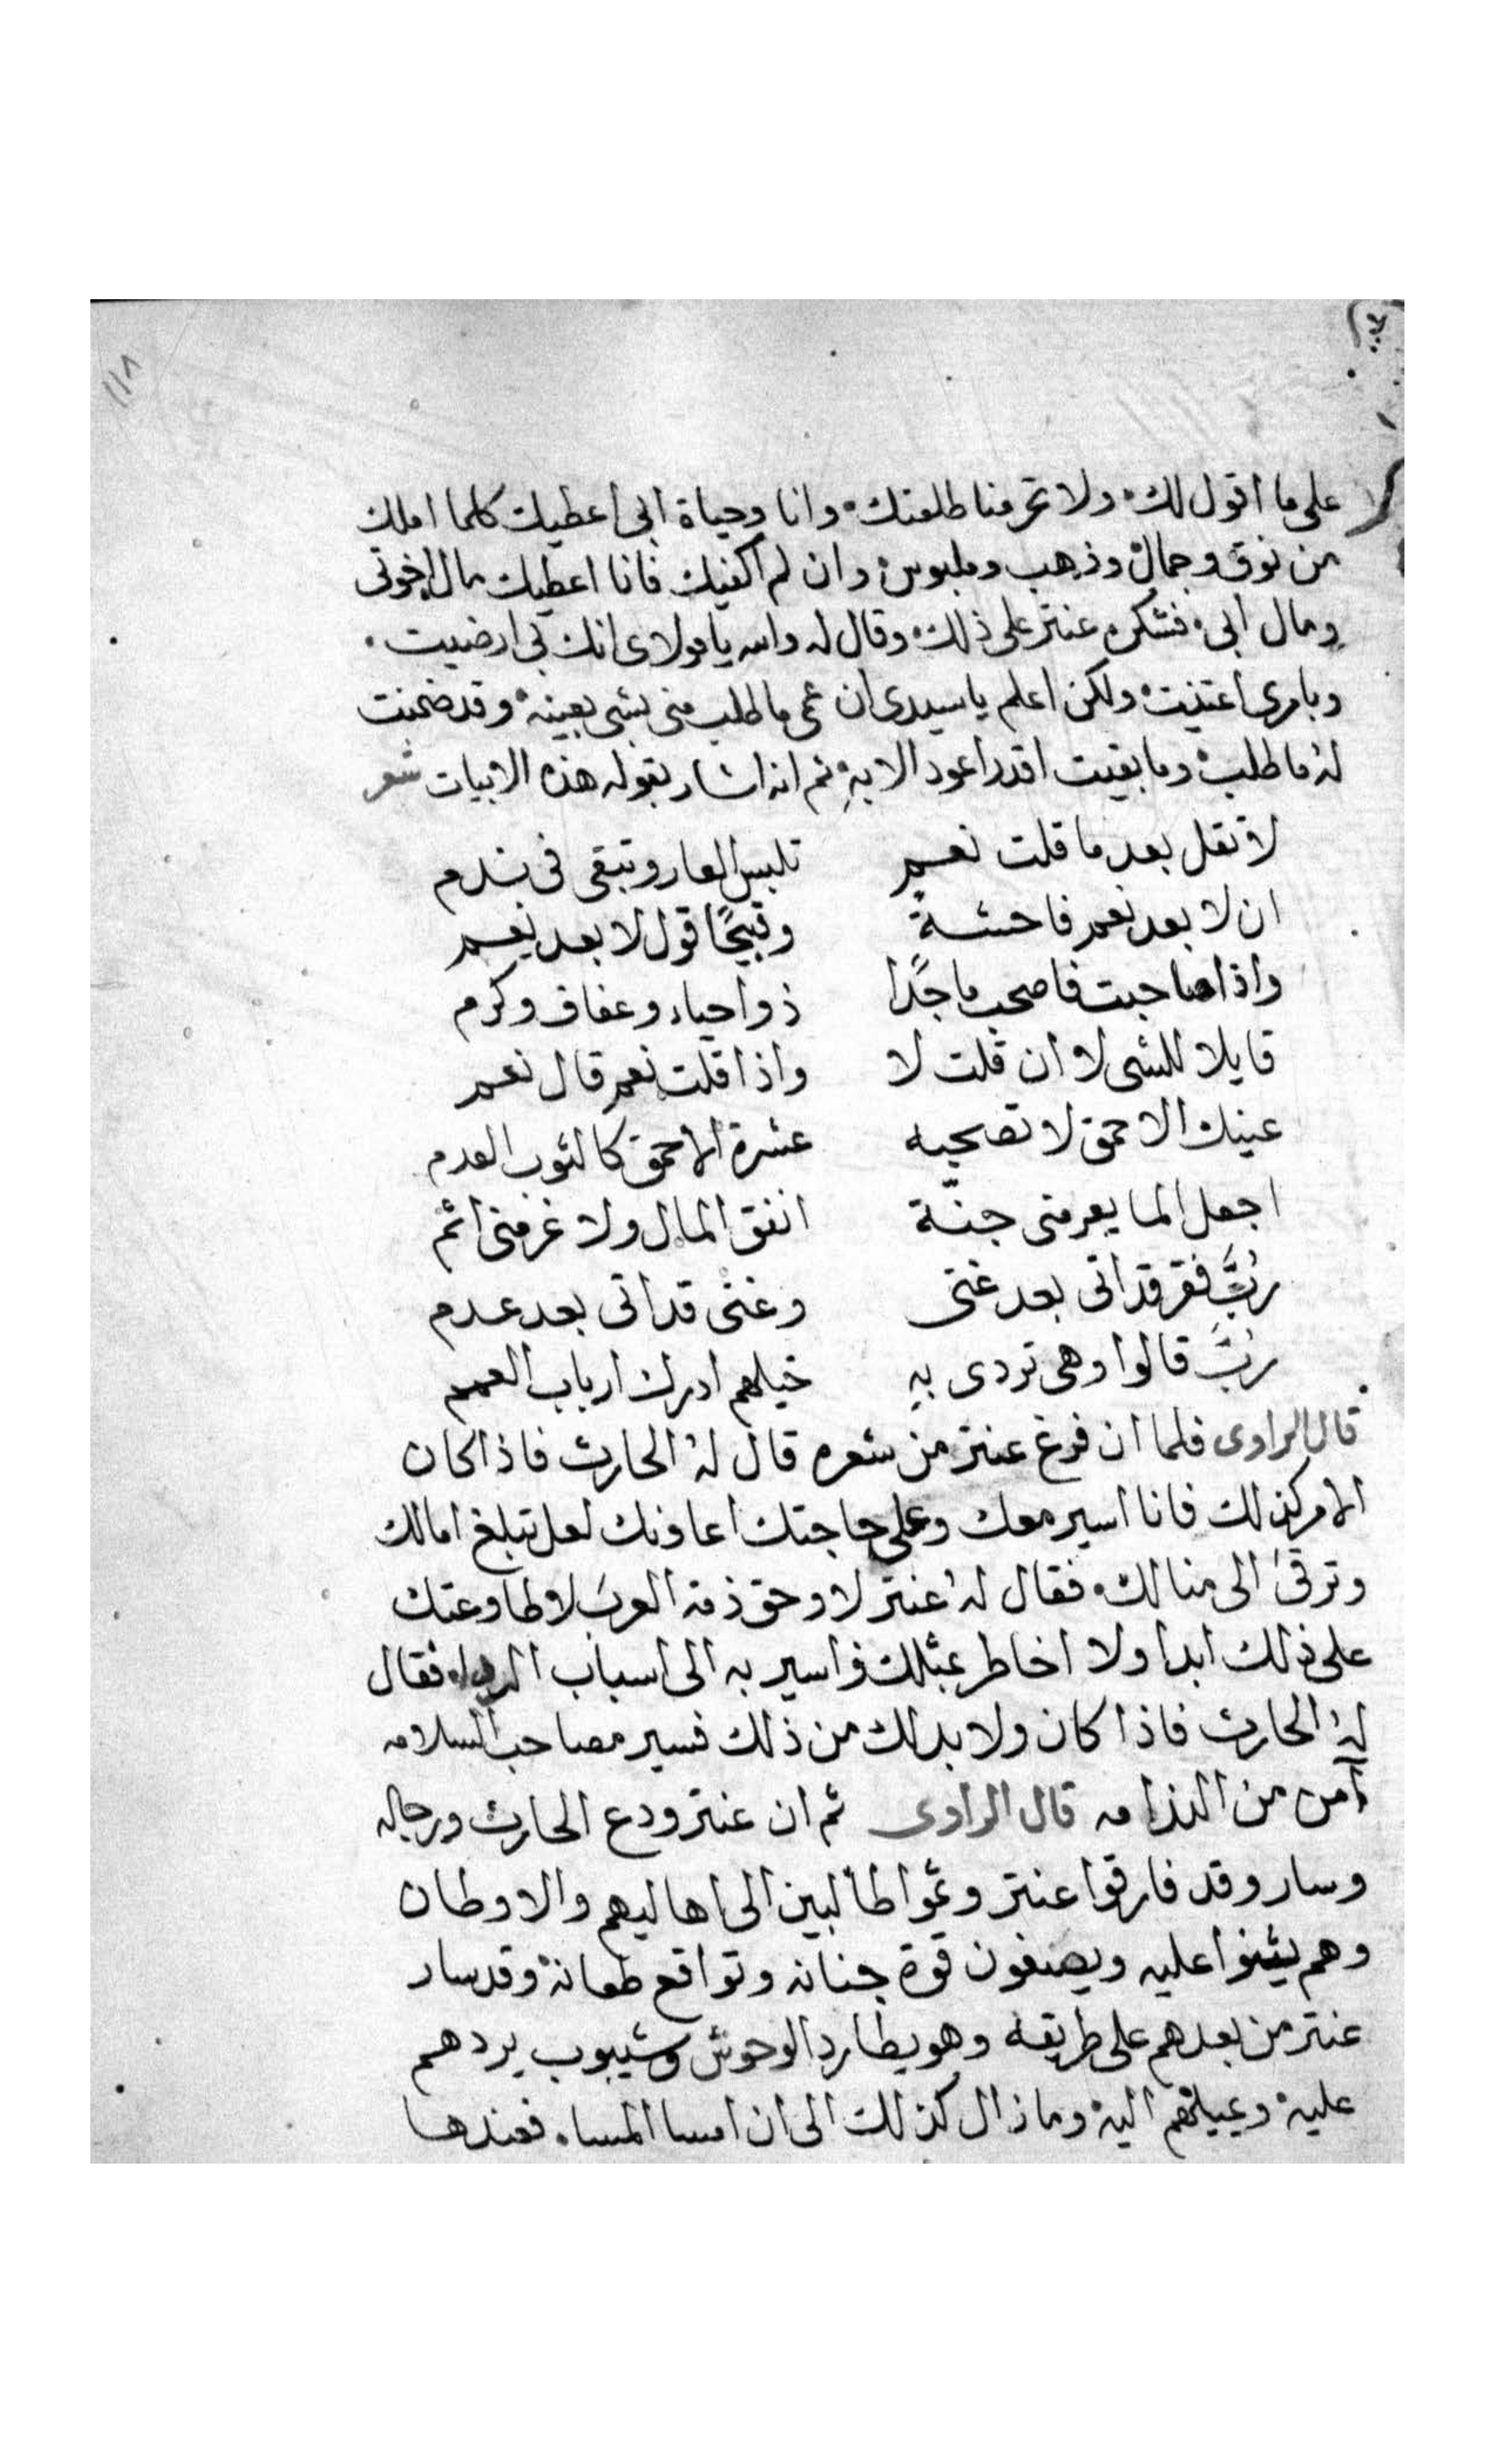 ١١٨
على ما اقول لك ولا تحرمنا طلعتك وانا وحياة ابى اعطيك كلما املك
من نوق وجمال وذهب وملبوس وان لم اكفيك فانا اعطيك مال اخوتى
ومال ابى فشكره عنتر على ذلك وقال له والله يا مولاى انك لى ارضيت
وبامرى اعتنيت ولكن اعلم يا سيدى ان عمى ما طلب منى شى بعينه وقد ضمنت
له ما طلب وما بقيت اقدر اعود الا به ثم انه اشار بقوله هذه الابيات شعر
لا تقل بعد ما قلت نعم تلبس العار وتبقى فى ندم
ان لا بعد نعم فاحشةً وقبيحًا قول لا بعد نعم
واذا صاحبت فاصحب ماجدًا ذوا حياء وعفاف وكرم
قايلا للشى لا ان قلت لا واذا قلت نعم قال نعم
عينك الاحمق لا تصحبه عشرة الاحمق كالثوب العدم
اجعل المال جنّة انفق المال ولا
رُبَّ فقر قد اتى بعد غنى وغنى قد اتى بعد عدم
رُبَّ قالوا وهى تردى به خيلهم ادرك ارباب
قال الراوى فلما ان فرغ عنتر من شعره قال له الحارث فاذا كان
الامر كذلك فانا اسير معك وعلى حاجتك اعاونك لعل تبلغ امالك
وترقى الى منالك فقال له عنتر لا وحق ذمة العرب لا طاوعتك
على ذلك ابدا ولا اخاطر بمثلك واسير به الى اسباب فقال
له الحارث فاذا كان ولا بد لك من ذلك فسير مصاحب السلامه
آمن من الندامه قال الراوى ثم ان عنتر ودع الحارث ورجاله
وسار وقد فارقوا عنتر وتموا طالبين الى اهاليهم والاوطان
وهم يثنوا عليه ويصفون قوة جنانه وتواقع طعانه وقد سار
عنتر من بعدهم على طريقه وهو يطارد الوحوش وشيبوب يردهم
عليه ويميلهم اليه وما زال كذلك الى ان امسا المساء فعندها